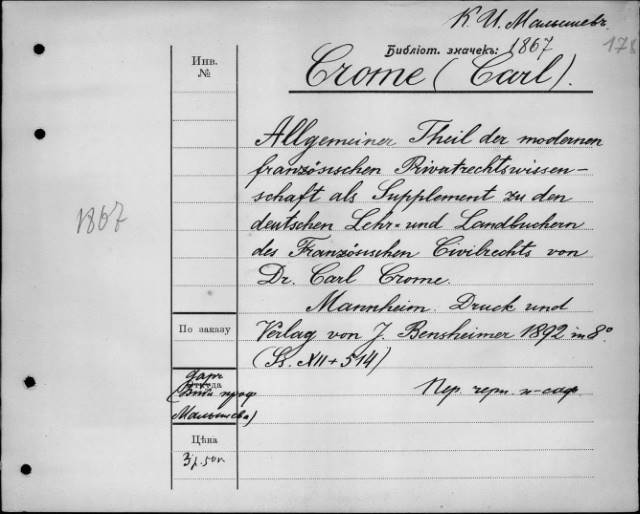 К. И. Малышевъ
Библіот. значекъ: 1867
178
Crome (Carl).
Инв.
№
Allgemeiner Theil der modernen
französischen Privatrechtswissen-
schaft als Supplement zu den
1867
deutschen Lehr= und Landbuchern
des Französischen Civilrechts von
Dr. Carl Crome.
Mannheim. Druck und
По заказу
Verlag von J. Bensheimer 1892 in 8°
(Ss. XII + 514)
Даръ
Откуда
проф
Малышева)
Пер. черн. к-саф.
Цѣна
3 р. 50 к